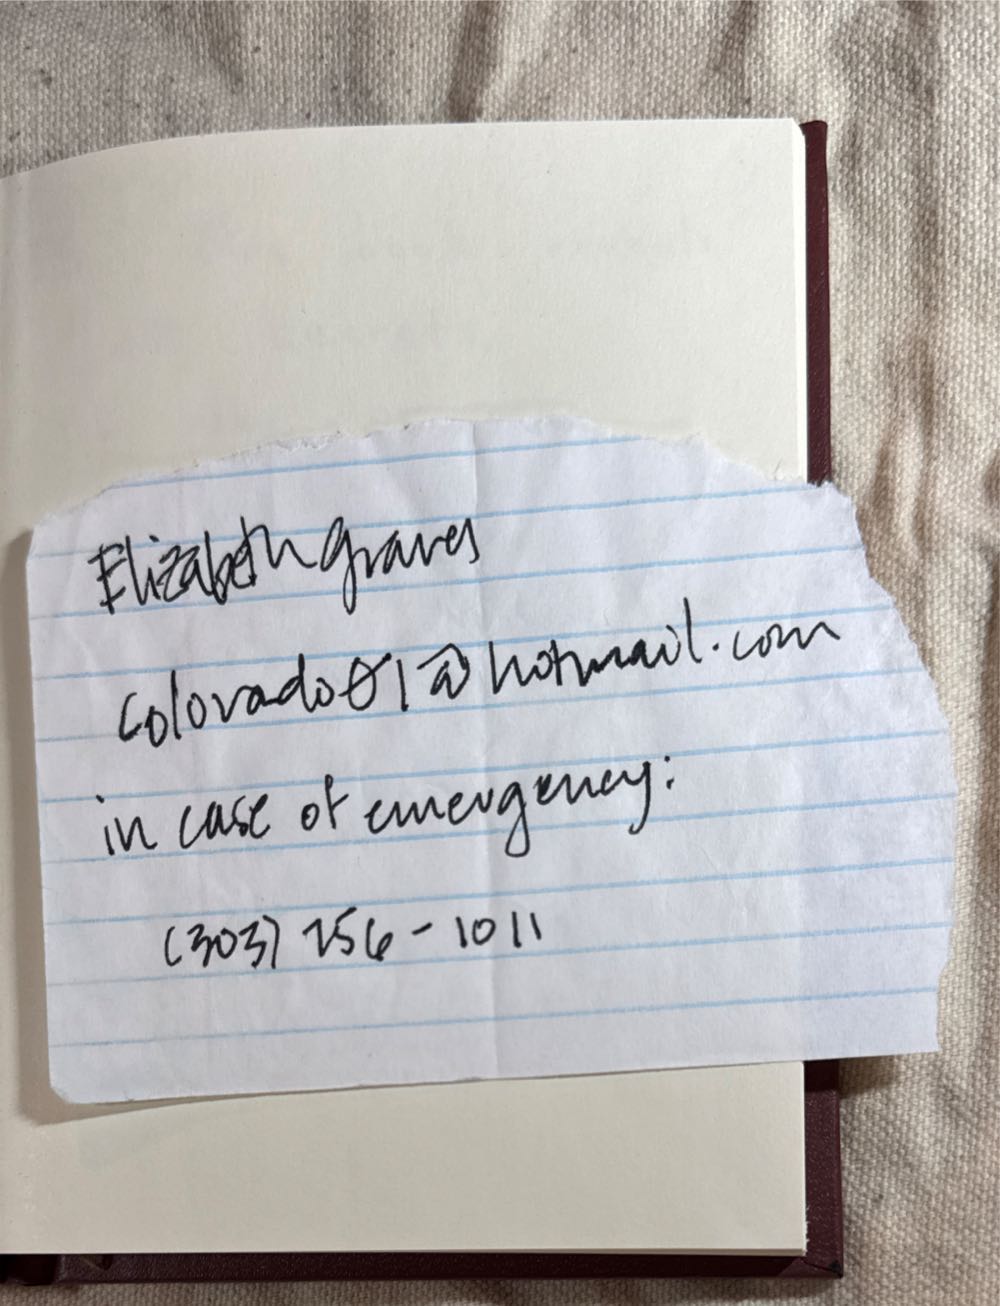 Elizabeth Graves
colorado01@hotmail.com
in case of emergency:
(303) 256-1011